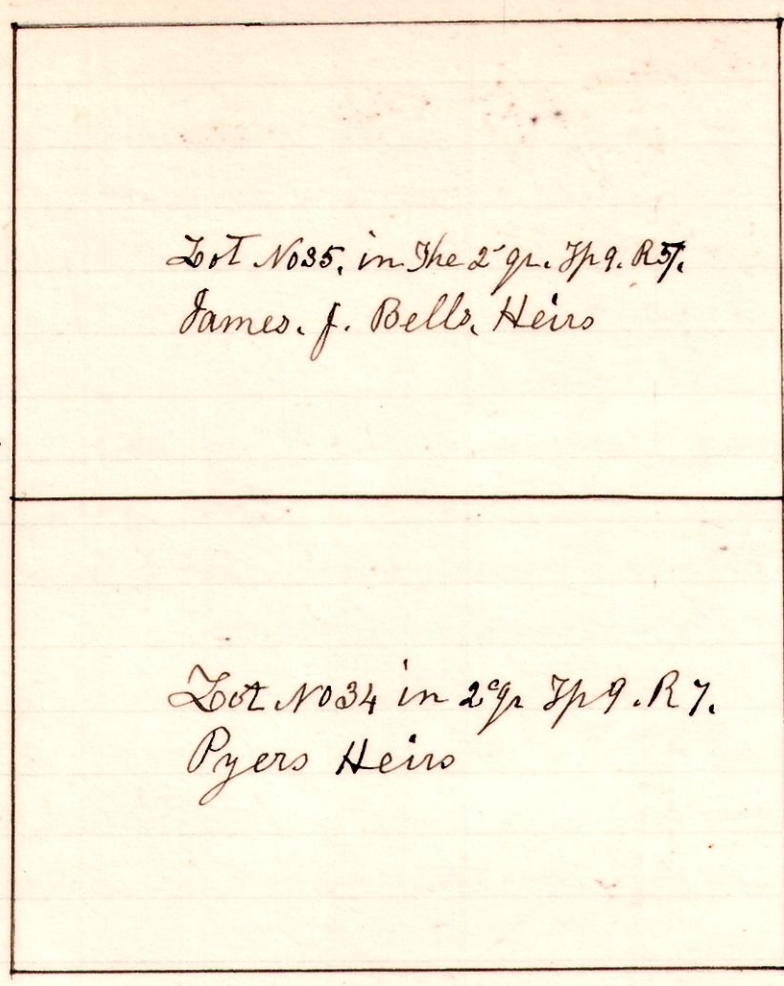 Lot No 35. in The 2 qr. Tp 9. R 7.
James. J. Bells, Heirs
Lot No 34 in 2d qr Tp 9. R 7.
Pyers Heirs